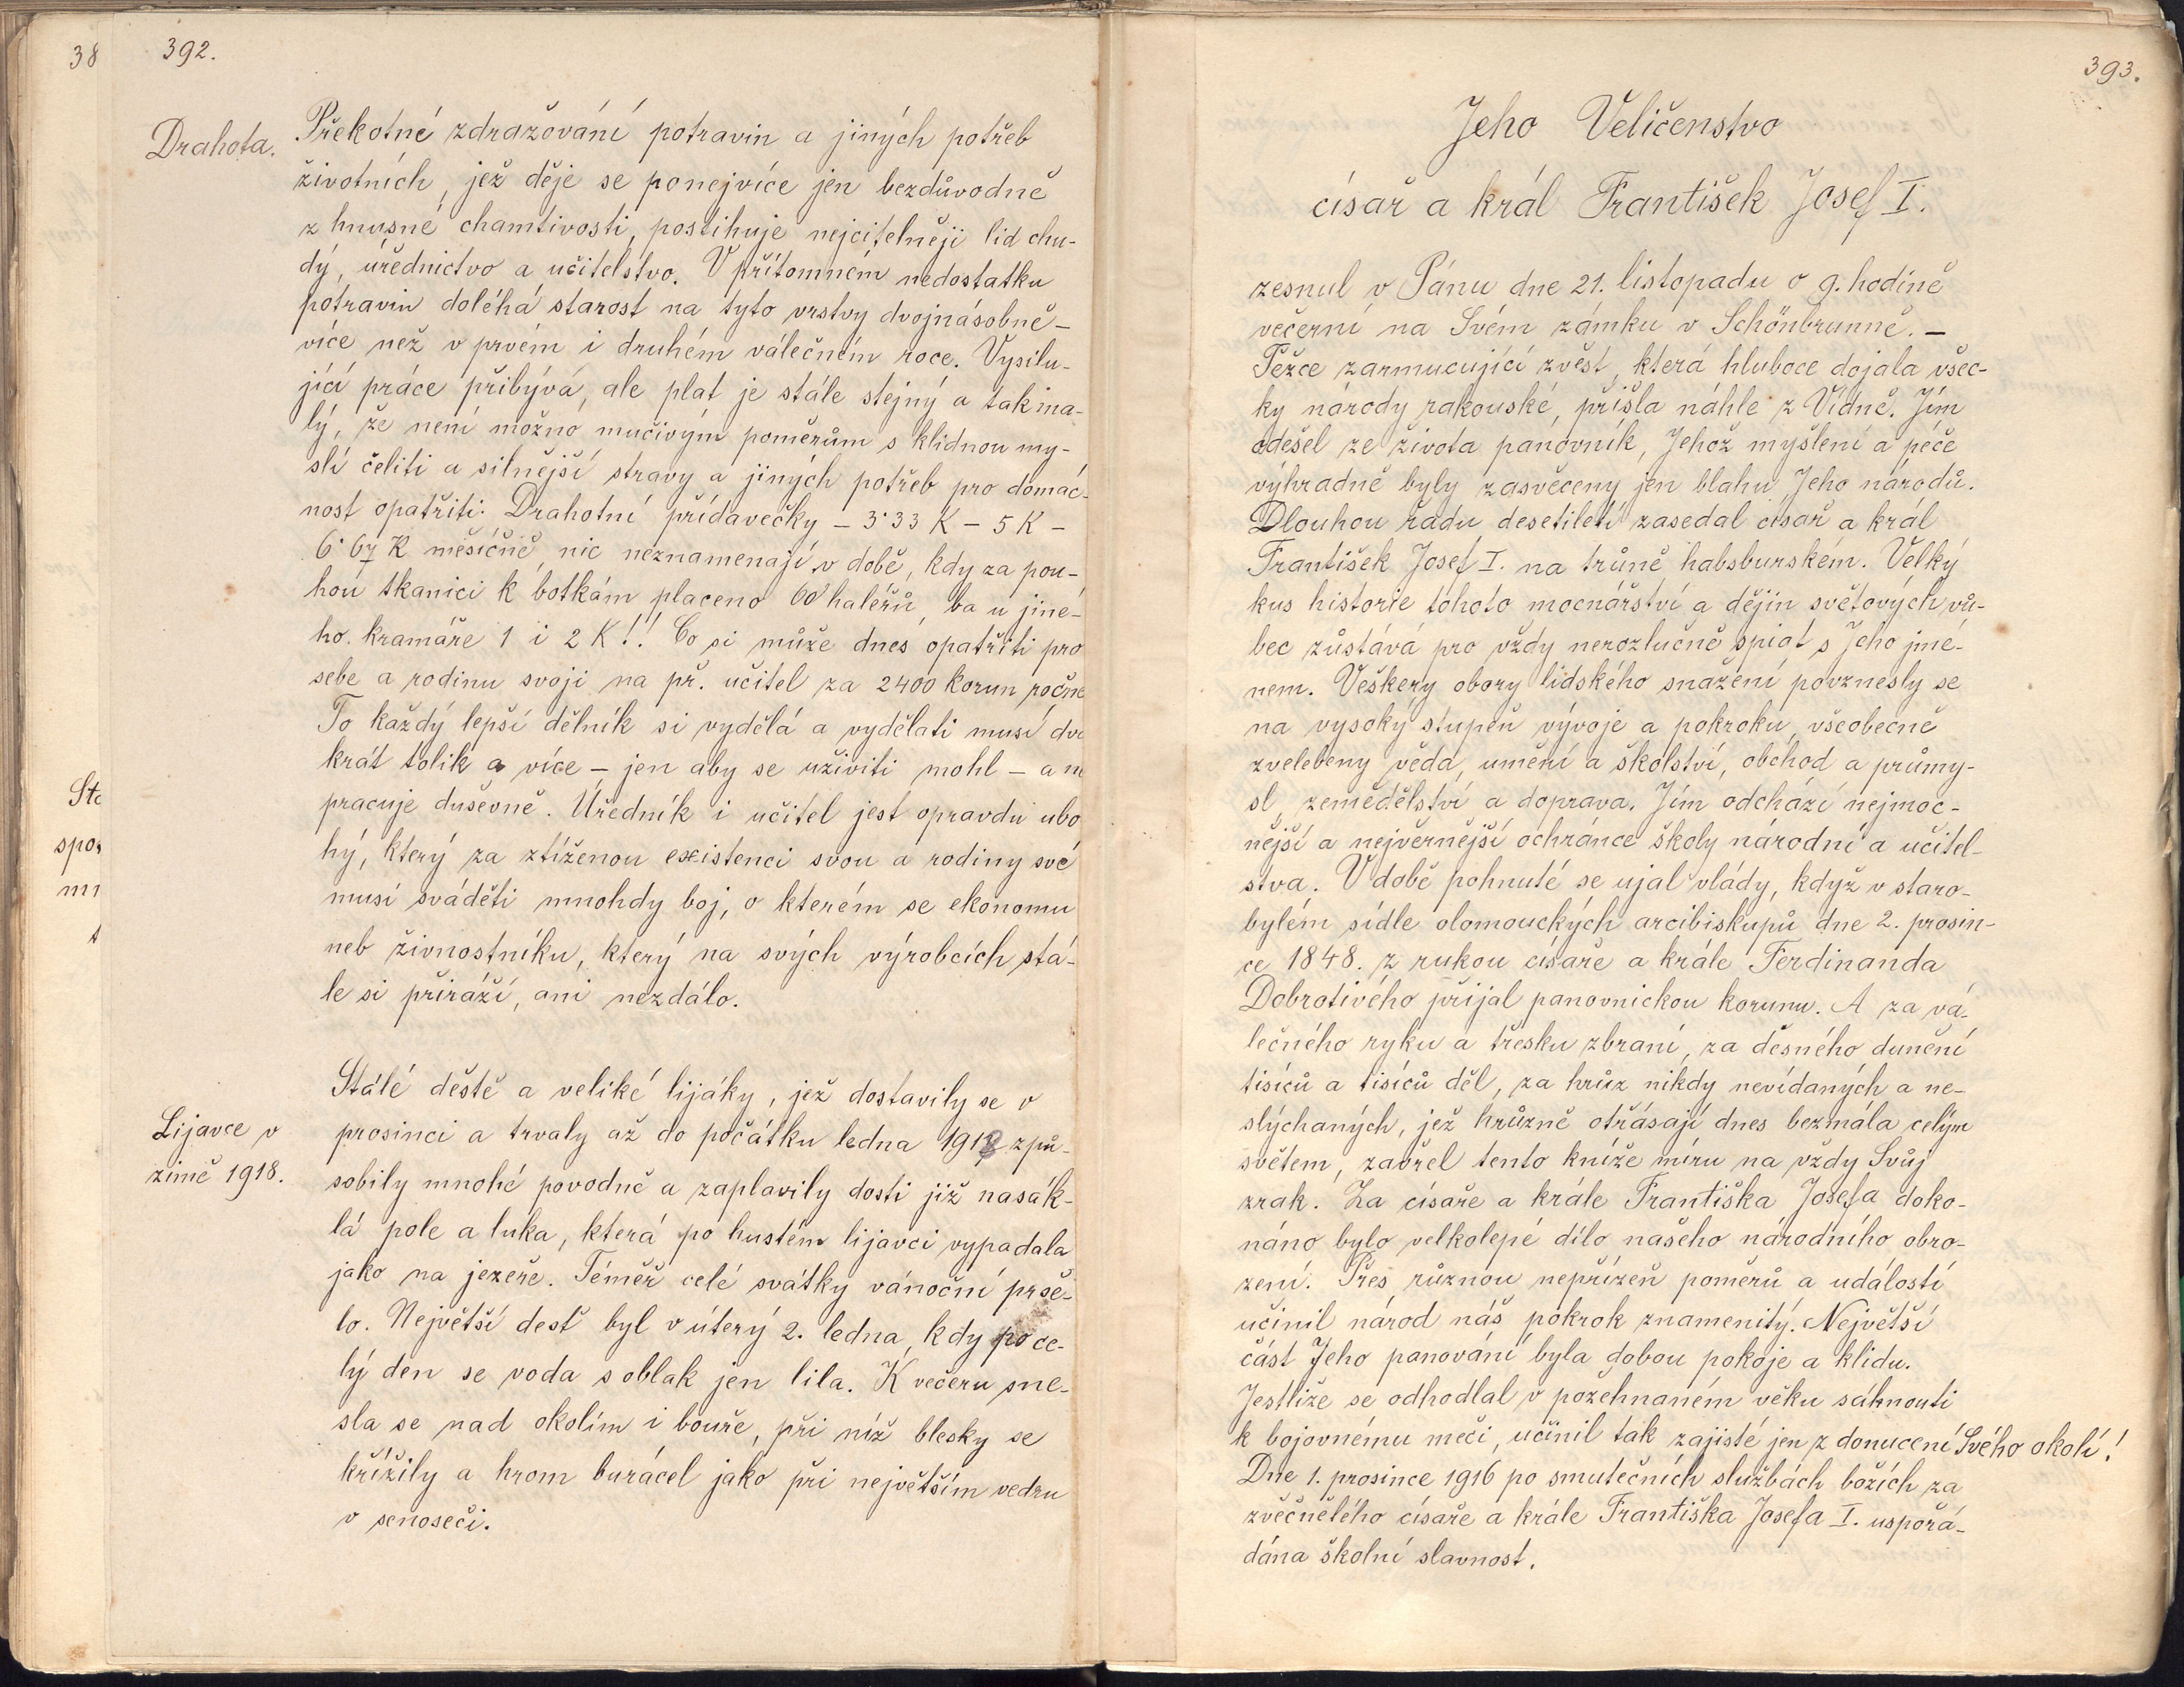 38
Stc
spor
392.
Drahota.
Překotné zdražování potravin a jiných potřeb
životních, jež děje se ponejvíce jen bezdůvodně
z hnusné chamtivosti, postihuje nejcitelněji lid chu-
dý, úřednictvo a učitelstvo. V přítomném nedostatku
potravin doléhá starost na tyto vrstvy dvojnásobně –
více než v prvém i druhém válečném roce. Vysilu-
jící práce přibývá, ale plat je stále stejný a tak ma-
lý, že není možno mučivým poměrům s klidnou my-
slí čeliti a silnější stravy a jiných potřeb pro domác-
nost opatřiti. Drahotní přídavečky – 3·33 K – 5 K –
6·67 K měsíčně nic neznamenají v době, kdy za pou-
hou tkanici k botkám placeno 60 haléřů, ba u jiné-
ho kramáře 1 i 2 K!! Co si může dnes opatřiti pro
sebe a rodinu svoji na př. učitel za 2400 korun ročně
To každý lepší dělník si vydělá a vydělati musí dva
krát tolik a více – jen aby se uživiti mohl – a ne
pracuje duševně. Úředník i učitel jest opravdu ubo
hý, který za ztíženou existenci svou a rodiny své
musí sváděti mnohdy boj, o kterém se ekonomu
neb živnostníku, který na svých výrobcích stá-
le si přiráží, ani nezdálo.
Lijavce v
zimě 1918.
Stálé deště a veliké lijáky, jež dostavily se v
prosinci a trvaly až do počátku ledna 1918 způ-
sobily mnohé povodně a zaplavily dosti již nasák-
lá pole a luka, která po hustém lijavci vypadala
jako na jezeře. Téměř celé svátky vánoční prše-
lo. Největší dešť byl v úterý 2. ledna, kdy po ce-
lý den se voda s oblak jen lila. K večeru sne-
sla se nad okolím i bouře, při níž blesky se
křížily a hrom burácel jako při největším vedru
v senoseči.
393.
Jeho Veličenstvo
císař a král František Josef I.
zesnul v Pánu dne 21. listopadu o 9. hodině
večerní na Svém zámku v Schönbrunně. –
Těžce zarmucující zvěst, která hluboce dojala všec-
ky národy rakouské, přišla náhle z Vídně. Jím
odešel ze života panovník, Jehož myšlení a péče
výhradně byly zasvěceny jen blahu Jeho národů.
Dlouhou řadu desetiletí zasedal císař a král
František Josef I. na trůně habsburském. Velký
kus historie tohoto mocnářství a dějin světových vů-
bec zůstává pro vždy nerozlučně spiat s Jeho jmé-
nem. Veškery obory lidského snažení povznesly se
na vysoký stupeň vývoje a pokroku, všeobecně
zvelebeny věda, umění a školství, obchod a průmy-
sl, zemědělství a doprava. Jím odchází nejmoc-
nější a nejvěrnější ochránce školy národní a učitel-
stva. V době pohnuté se ujal vlády, když v staro-
bylém sídle olomouckých arcibiskupů dne 2. prosin-
ce 1848. z rukou císaře a krále Ferdinanda
Dobrotivého přijal panovnickou korunu. A za vá-
lečného ryku a třesku zbraní, za děsného dunění
tisíců a tisíců děl, za hrůz nikdy nevídaných a ne-
slýchaných, jež hrůzně otřásají dnes bezmála celým
světem, zavřel tento kníže míru na vždy Svůj
zrak. Za císaře a krále Františka Josefa doko-
náno bylo velkolepé dílo našeho národního obro-
zení. Přes různou nepřízeň poměrů a událostí
učinil národ náš pokrok znamenitý. Největší
část Jeho panování byla dobou pokoje a klidu.
Jestliže se odhodlal v požehnaném věku sáhnouti
k bojovnému meči, učinil tak zajisté jen z donucení Svého okolí!
Dne 1. prosince 1916 po smutečních službách božích za
zvěčnělého císaře a krále Františka Josefa I. uspořá-
dána školní slavnost.